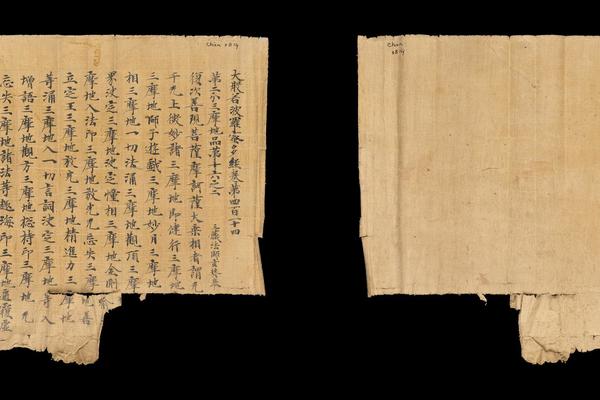 Chin 0819
大般若波羅蜜多經卷第四百一十四
第二分三摩地品第十六之二 三藏法師玄奘奉
復次善現菩薩摩訶薩大乘相者謂无
千无上微妙諸三摩地即健行三摩地
三摩地師子遊戲三摩地妙月三摩地
相三摩地一切法涌三摩地觀頂三摩
界決定三摩地決定幢相三摩地金剛喻
摩地入法印三摩地放光无忘失三摩地善
立定王三摩地放光三摩地精進力三摩地
等涌三摩地入一切言詞決定三摩地等入
增語三摩地觀方三摩地總持印三摩地无
忘失三摩地諸法等趣海印三摩地遍覆虛
Chin
0819